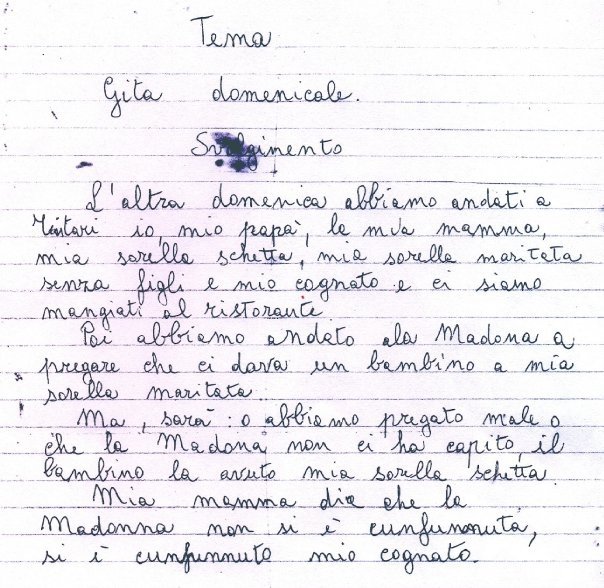 Tema
Gita domenicale.
Svolgimento
L'altra domenica abbiamo andati a
Tintari io, mio papà, la mia mamma,
mia sorella schetta, mia sorella maritata
senza figli e mio cognato e ci siamo
mangiati al ristorante.
Poi abbiamo andato ala Madona a
pregare che ci dava un bambino a mia
sorella maritata.
Ma, sarà: o abbiamo pregato male o
che la Madona non ci ha capito, il
bambino la avuto mia sorella schetta.
Mia mamma dice che la
Madonna non si è cunfunnuta,
si è cunfunnuto mio cognato.